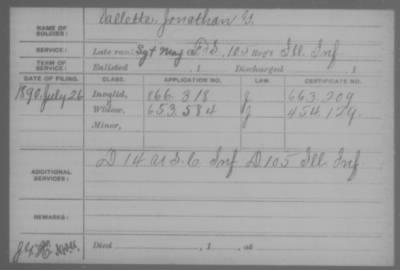 NAME OF SOLDIER: Vallette, Jonathan G.
SERVICE: Late rank, Sgt Maj F&S, 105 Regt Ill. Inf
TERM OF SERVICE: Enlisted , 1 Discharged , 1
DATE OF FILING. CLASS. APPLICATION NO. LAW. CERTIFICATE NO.
1890 July 26 Invalid, 866.318 J 663.209
Widow, 653.584 J 454.129
Minor,
ADDITIONAL SERVICES: D 14 U.S.C. Inf D 105 Ill. Inf
REMARKS:
Died , 1 , at